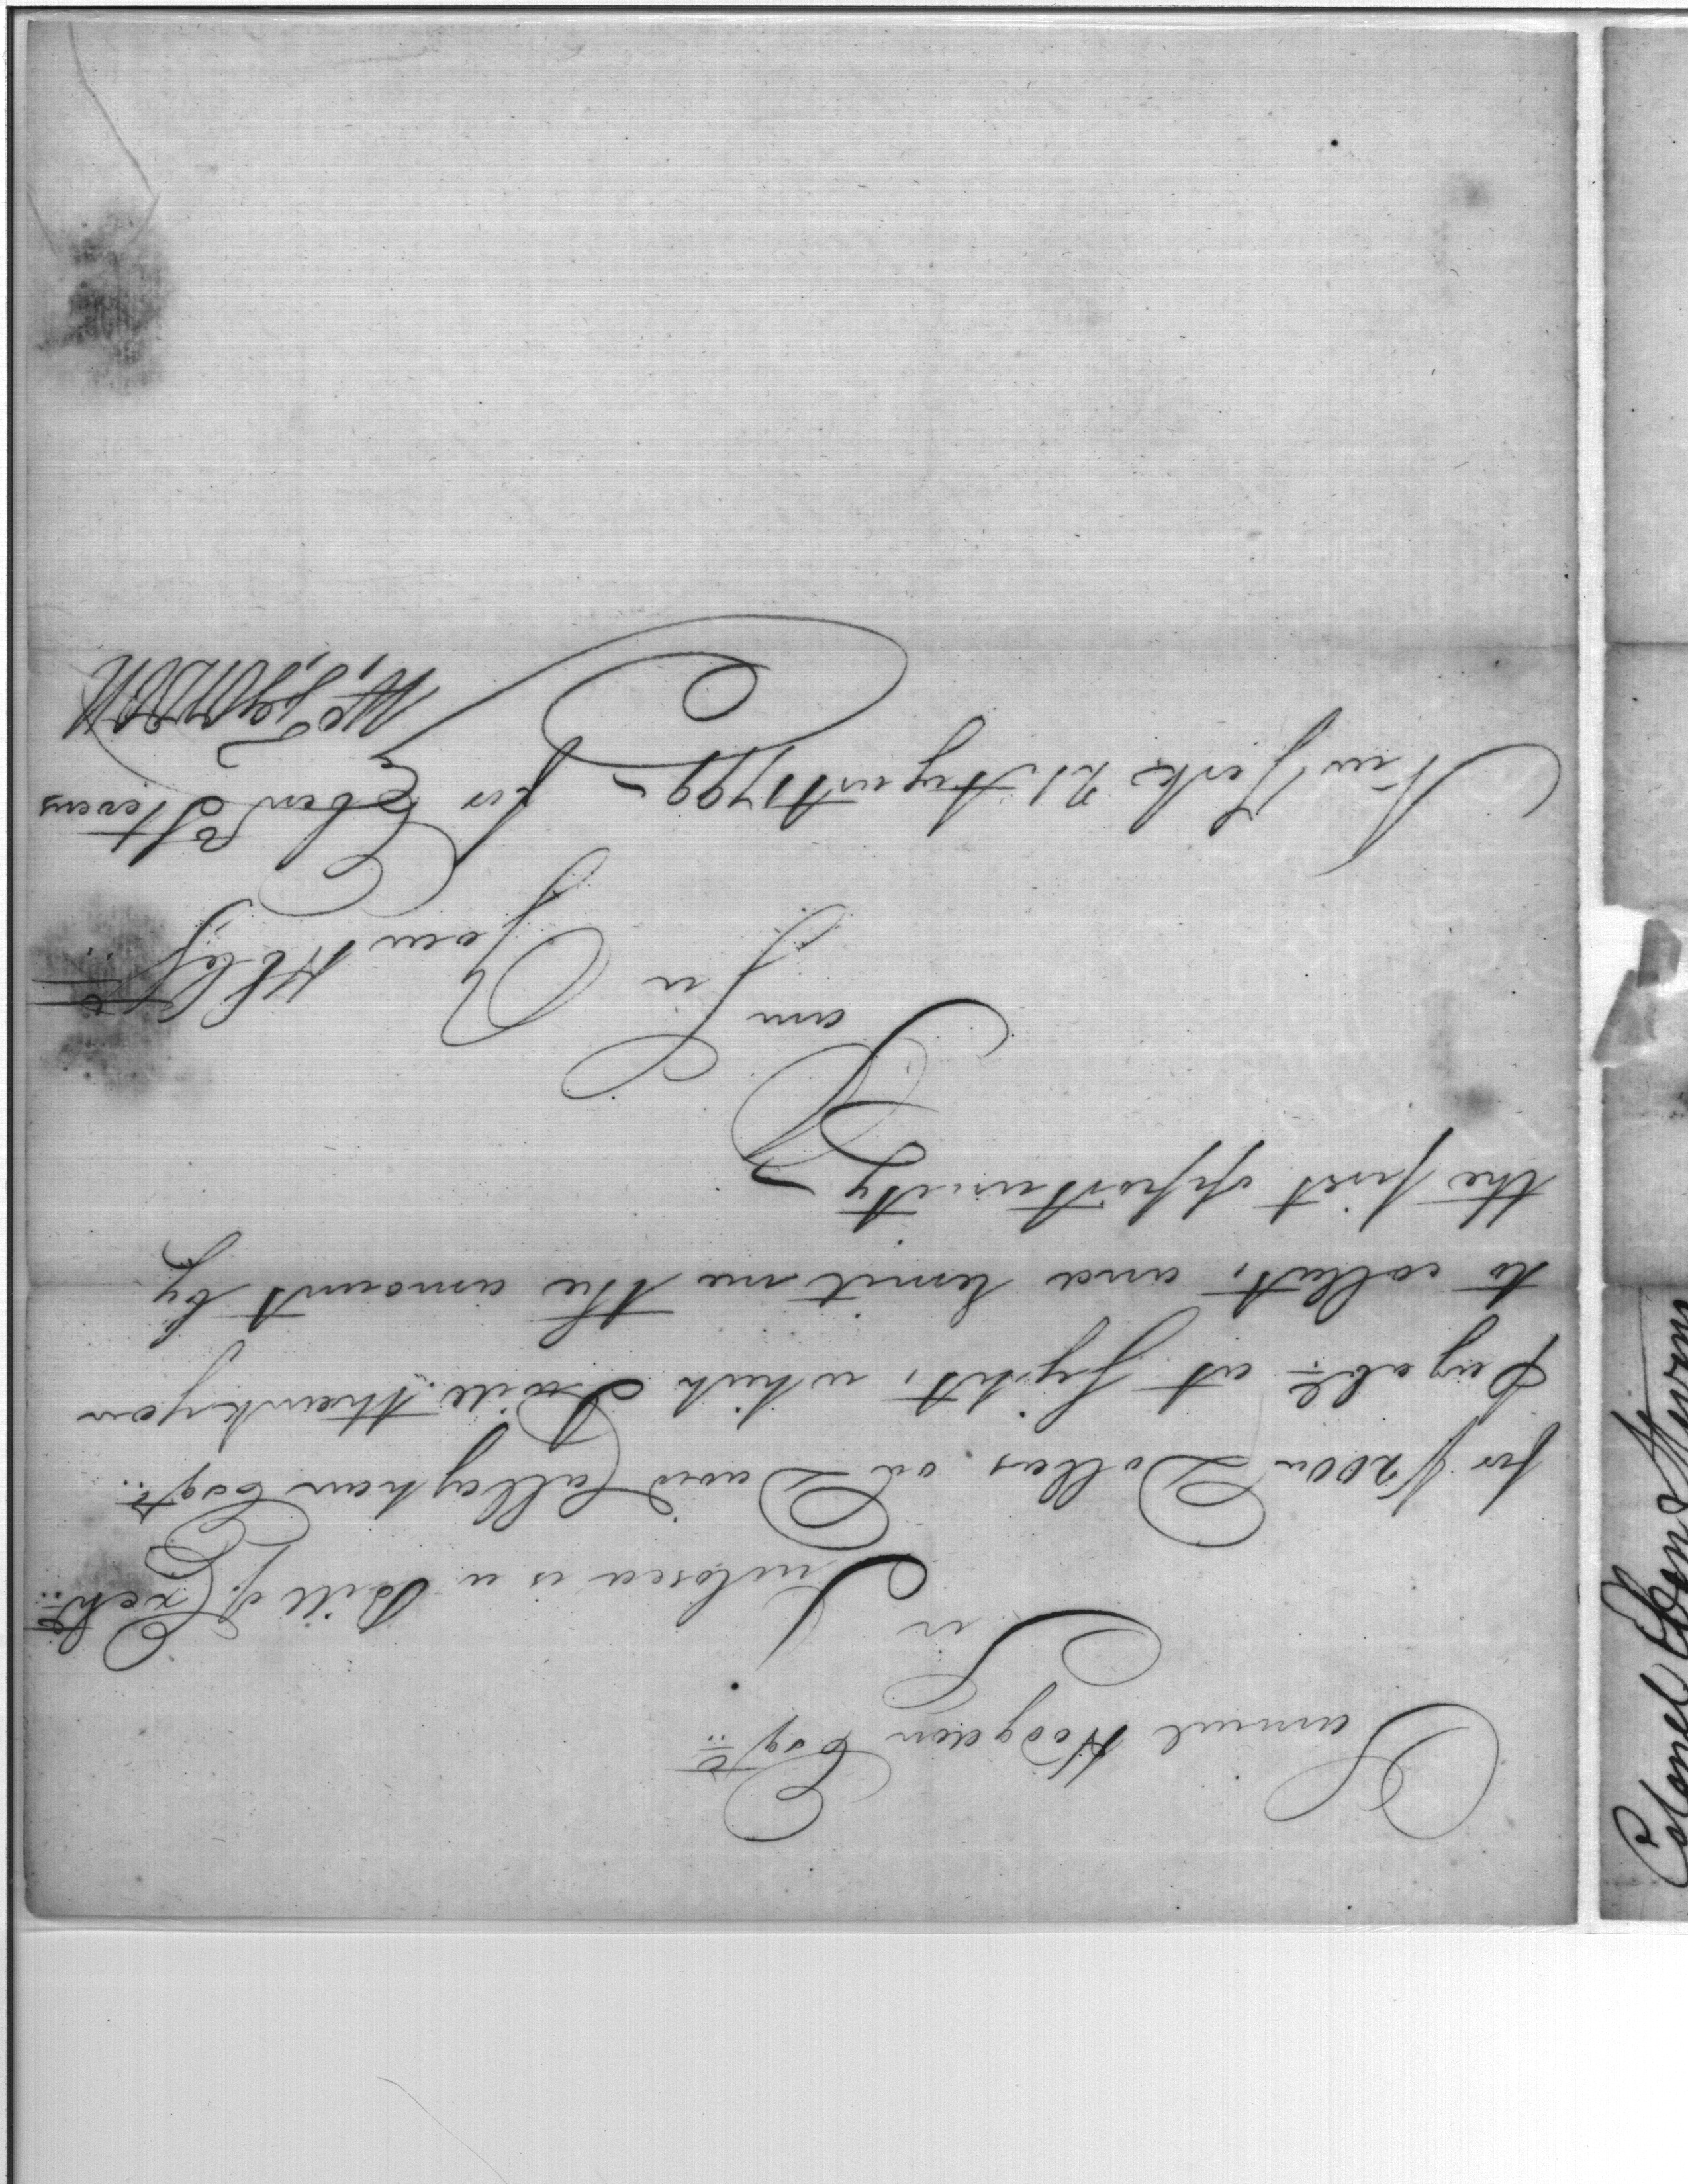 Samuel Hodgdon Esqr
Sir
Inclosed is a Bill of Exche
for $2000 Dollars on David Callaghan Esqr
payable at Sight, which I will thank you
to collect, and remit me the amount by
the first opportunity
I am Sir
Your Hble St
New York 21 August 1799 - for Eben Stevens
Colonel Eben Stevens